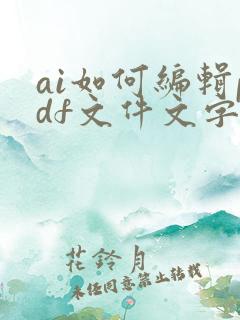 ai如何编辑p
df文件文字
花铃月
未经同意禁止转载